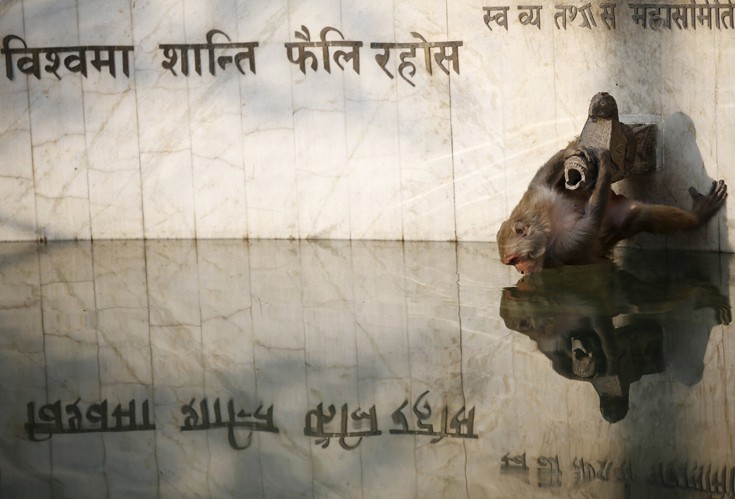 स्व व्य तथा स महासमिति
विश्वमा शान्ति फैलि रहोस